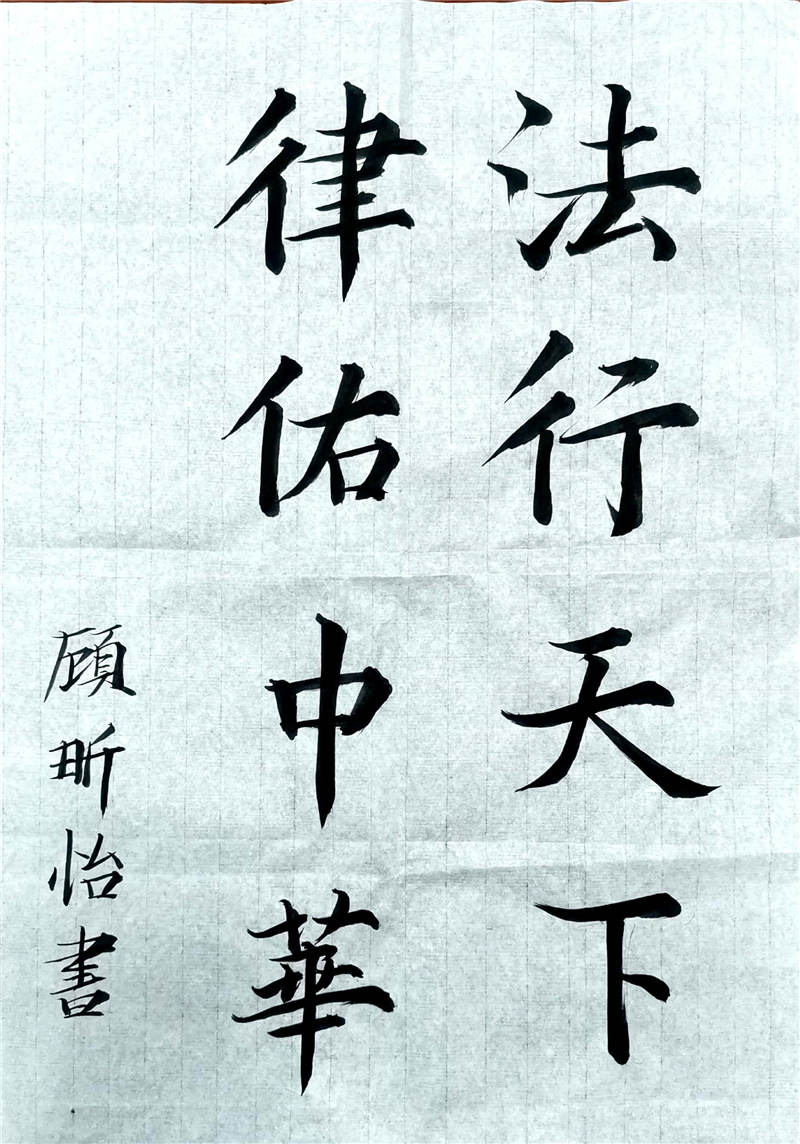 法行天下
律佑中華
顾昕怡書